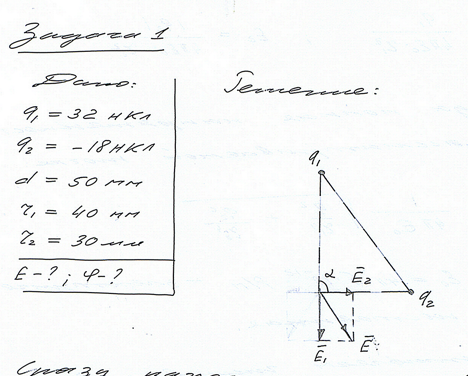 Задача 1
Дано:
q₁ = 32 нкл
q₂ = -18 нкл
d = 50 мм
r₁ = 40 мм
r₂ = 30 мм
E - ? ; φ - ?
Решение:
q₁
α
E̅₂
q₂
E̅₁
E̅